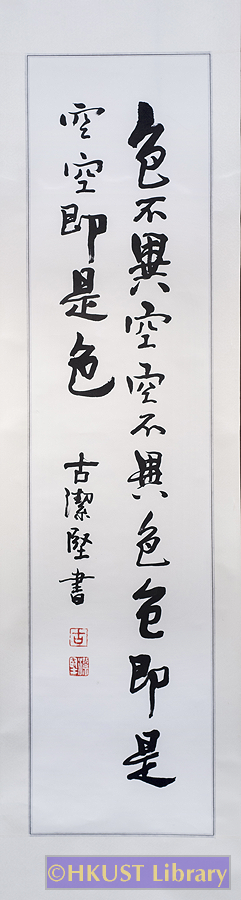 色不異空空不異色色即是
空空即是色
古潔堅書
古
©HKUST Library